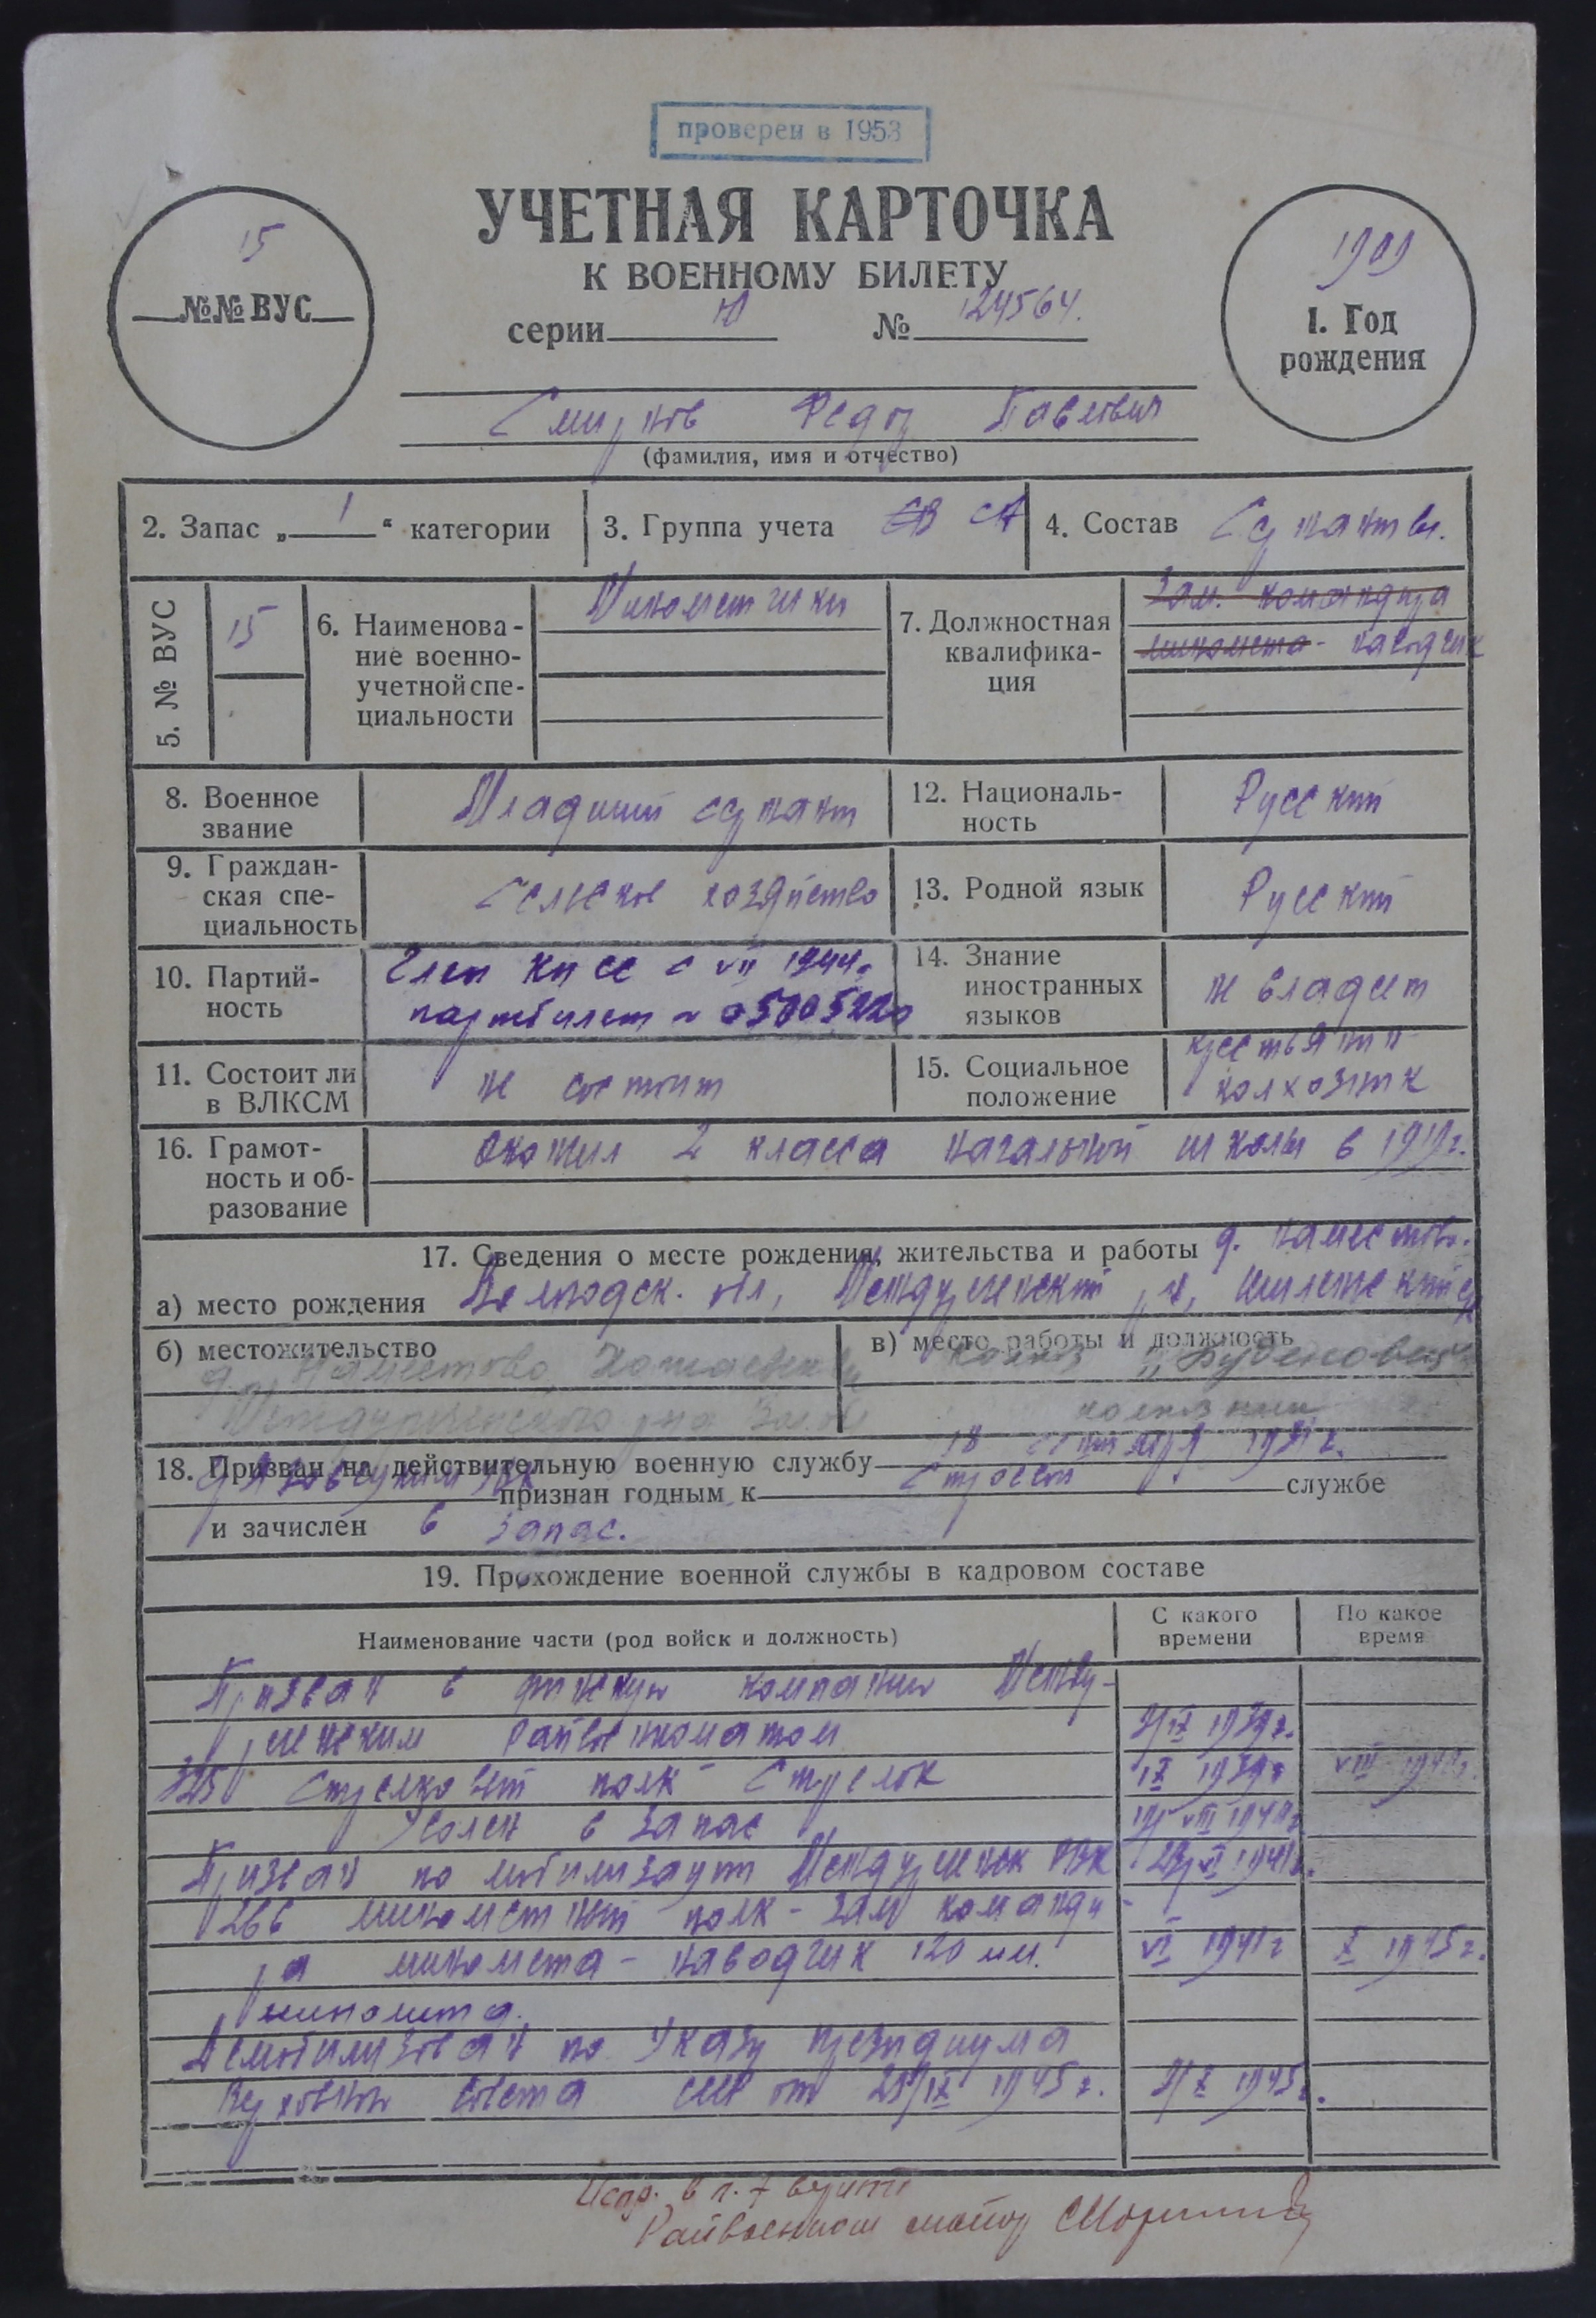 проверен в 1953
УЧЕТНАЯ КАРТОЧКА
К ВОЕННОМУ БИЛЕТУ
серии № 124564.
15
№№ ВУС
1909
1. Год
рождения
Смирнов Федор Павлович
(фамилия, имя и отчество)
2. Запас „ 1 “ категории
3. Группа учета СА
4. Состав Сержантск.
5. № ВУС
15
6. Наименова-
ние военно-
учетной спе-
циальности
Минометчики
7. Должностная
квалифика-
ция
Зам. командира
миномета - наводчик
8. Военное
звание
Младший сержант
12. Националь-
ность
Русский
9. Граждан-
ская спе-
циальность
Сельское хозяйство
13. Родной язык
Русский
10. Партий-
ность
Член КПСС с VII 1944г.
партбилет №
14. Знание
иностранных
языков
не владеет
11. Состоит ли
в ВЛКСМ
не состоит
15. Социальное
положение
крестьянин
колхозник
16. Грамот-
ность и об-
разование
Окончил 2 класса начальной школы в 1919г.
17. Сведения о месте рождения, жительства и работы д. Наместово.
а) место рождения Вологодск. обл, Междуреченский р-н,
б) местожительство
д. Наместово,
Междуреченского р-на Вол. об
в) место работы и должность
колхоз „Буденовец“
колхозник
18. Призван на действительную военную службу 18 сентября 1931г.
РВК признан годным к строевой службе
и зачислен в запас.
19. Прохождение военной службы в кадровом составе
Наименование части (род войск и должность)
С какого
времени
По какое
время
Призван в финскую компанию Между-
реченским Райвоенкоматом IX 1939г.
325 Стрелковый полк - Стрелок IX 1939г VIII 1940г.
Уволен в запас VIII 1940г
Призван по мобилизации Междуреченск РВК 23/VI 1941г.
266 минометный полк - зам команди-
ра миномета - наводчик 120 мм. VI 1941г X 1945г.
миномета.
Демобилизован по Указу президиума
Верховного Совета СССР от 25/IX 1945г. X 1945г.
Испр. в п. 7 верить
Райвоенком майор